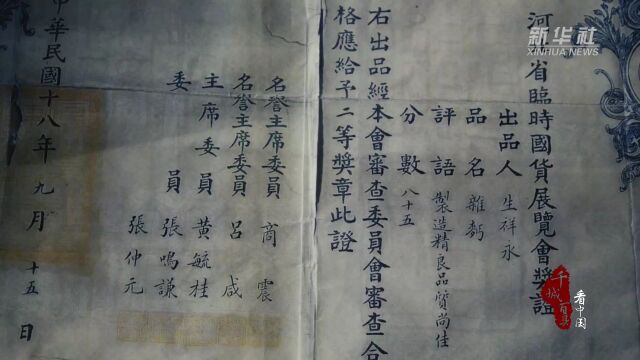 新华社
XINHUA NEWS
河北省臨時國貨展覽會獎證
出品人 生祥永
品名 雜麪
評語 製造精良品質尚佳
分數 八十五
右出品經本會審查委員會審查合
格應給予二等獎章此證
名譽主席委員 商震
名譽主席委員 呂咸
主席委員 黃毓桂
委員 張鳴謙
張仲元
中華民國十八年九月十五日
千城百县
看中国